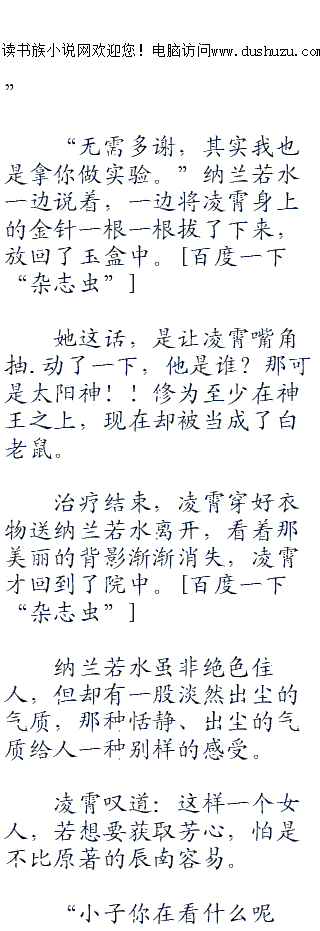 读书族小说网欢迎您！电脑访问www.dushuzu.com
”
“无需多谢，其实我也
是拿你做实验。”纳兰若水
一边说着，一边将凌霄身上
的金针一根一根拔了下来，
放回了玉盒中。[百度一下
“杂志虫”]
她这话，是让凌霄嘴角
抽.动了一下，他是谁？那可
是太阳神！！修为至少在神
王之上，现在却被当成了白
老鼠。
治疗结束，凌霄穿好衣
物送纳兰若水离开，看着那
美丽的背影渐渐消失，凌霄
才回到了院中。[百度一下
“杂志虫”]
纳兰若水虽非绝色佳
人，但却有一股淡然出尘的
气质，那种恬静、出尘的气
质给人一种别样的感受。
凌霄叹道：这样一个女
人，若想要获取芳心，怕是
不比原著的辰南容易。
“小子你在看什么呢